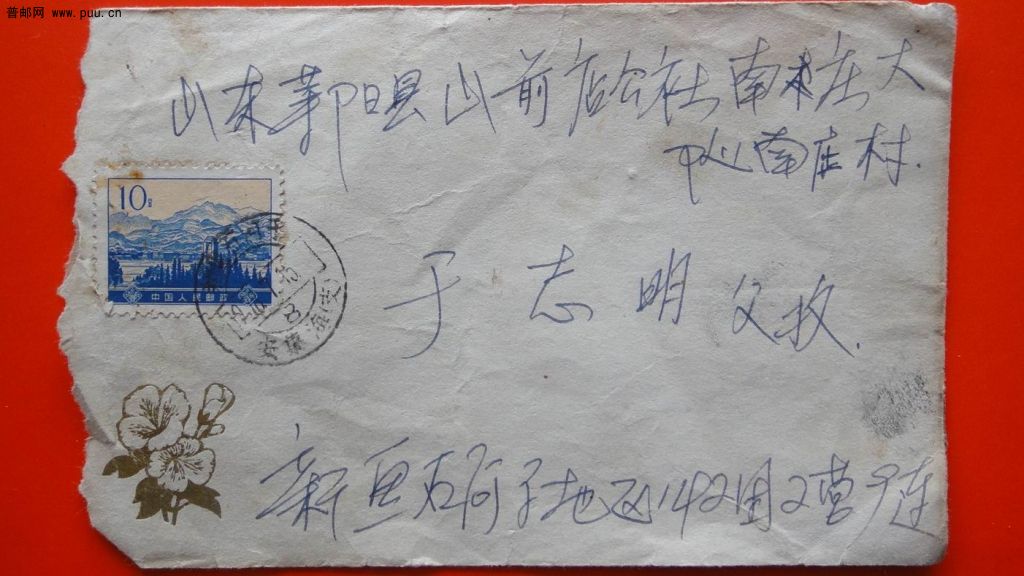 普邮网 www.puu.cn
山东鄆县山前店公社南木庄大
队南庄村.
10分
中国人民邮政
于志明父收.
新畺石河子地区142团2营9连